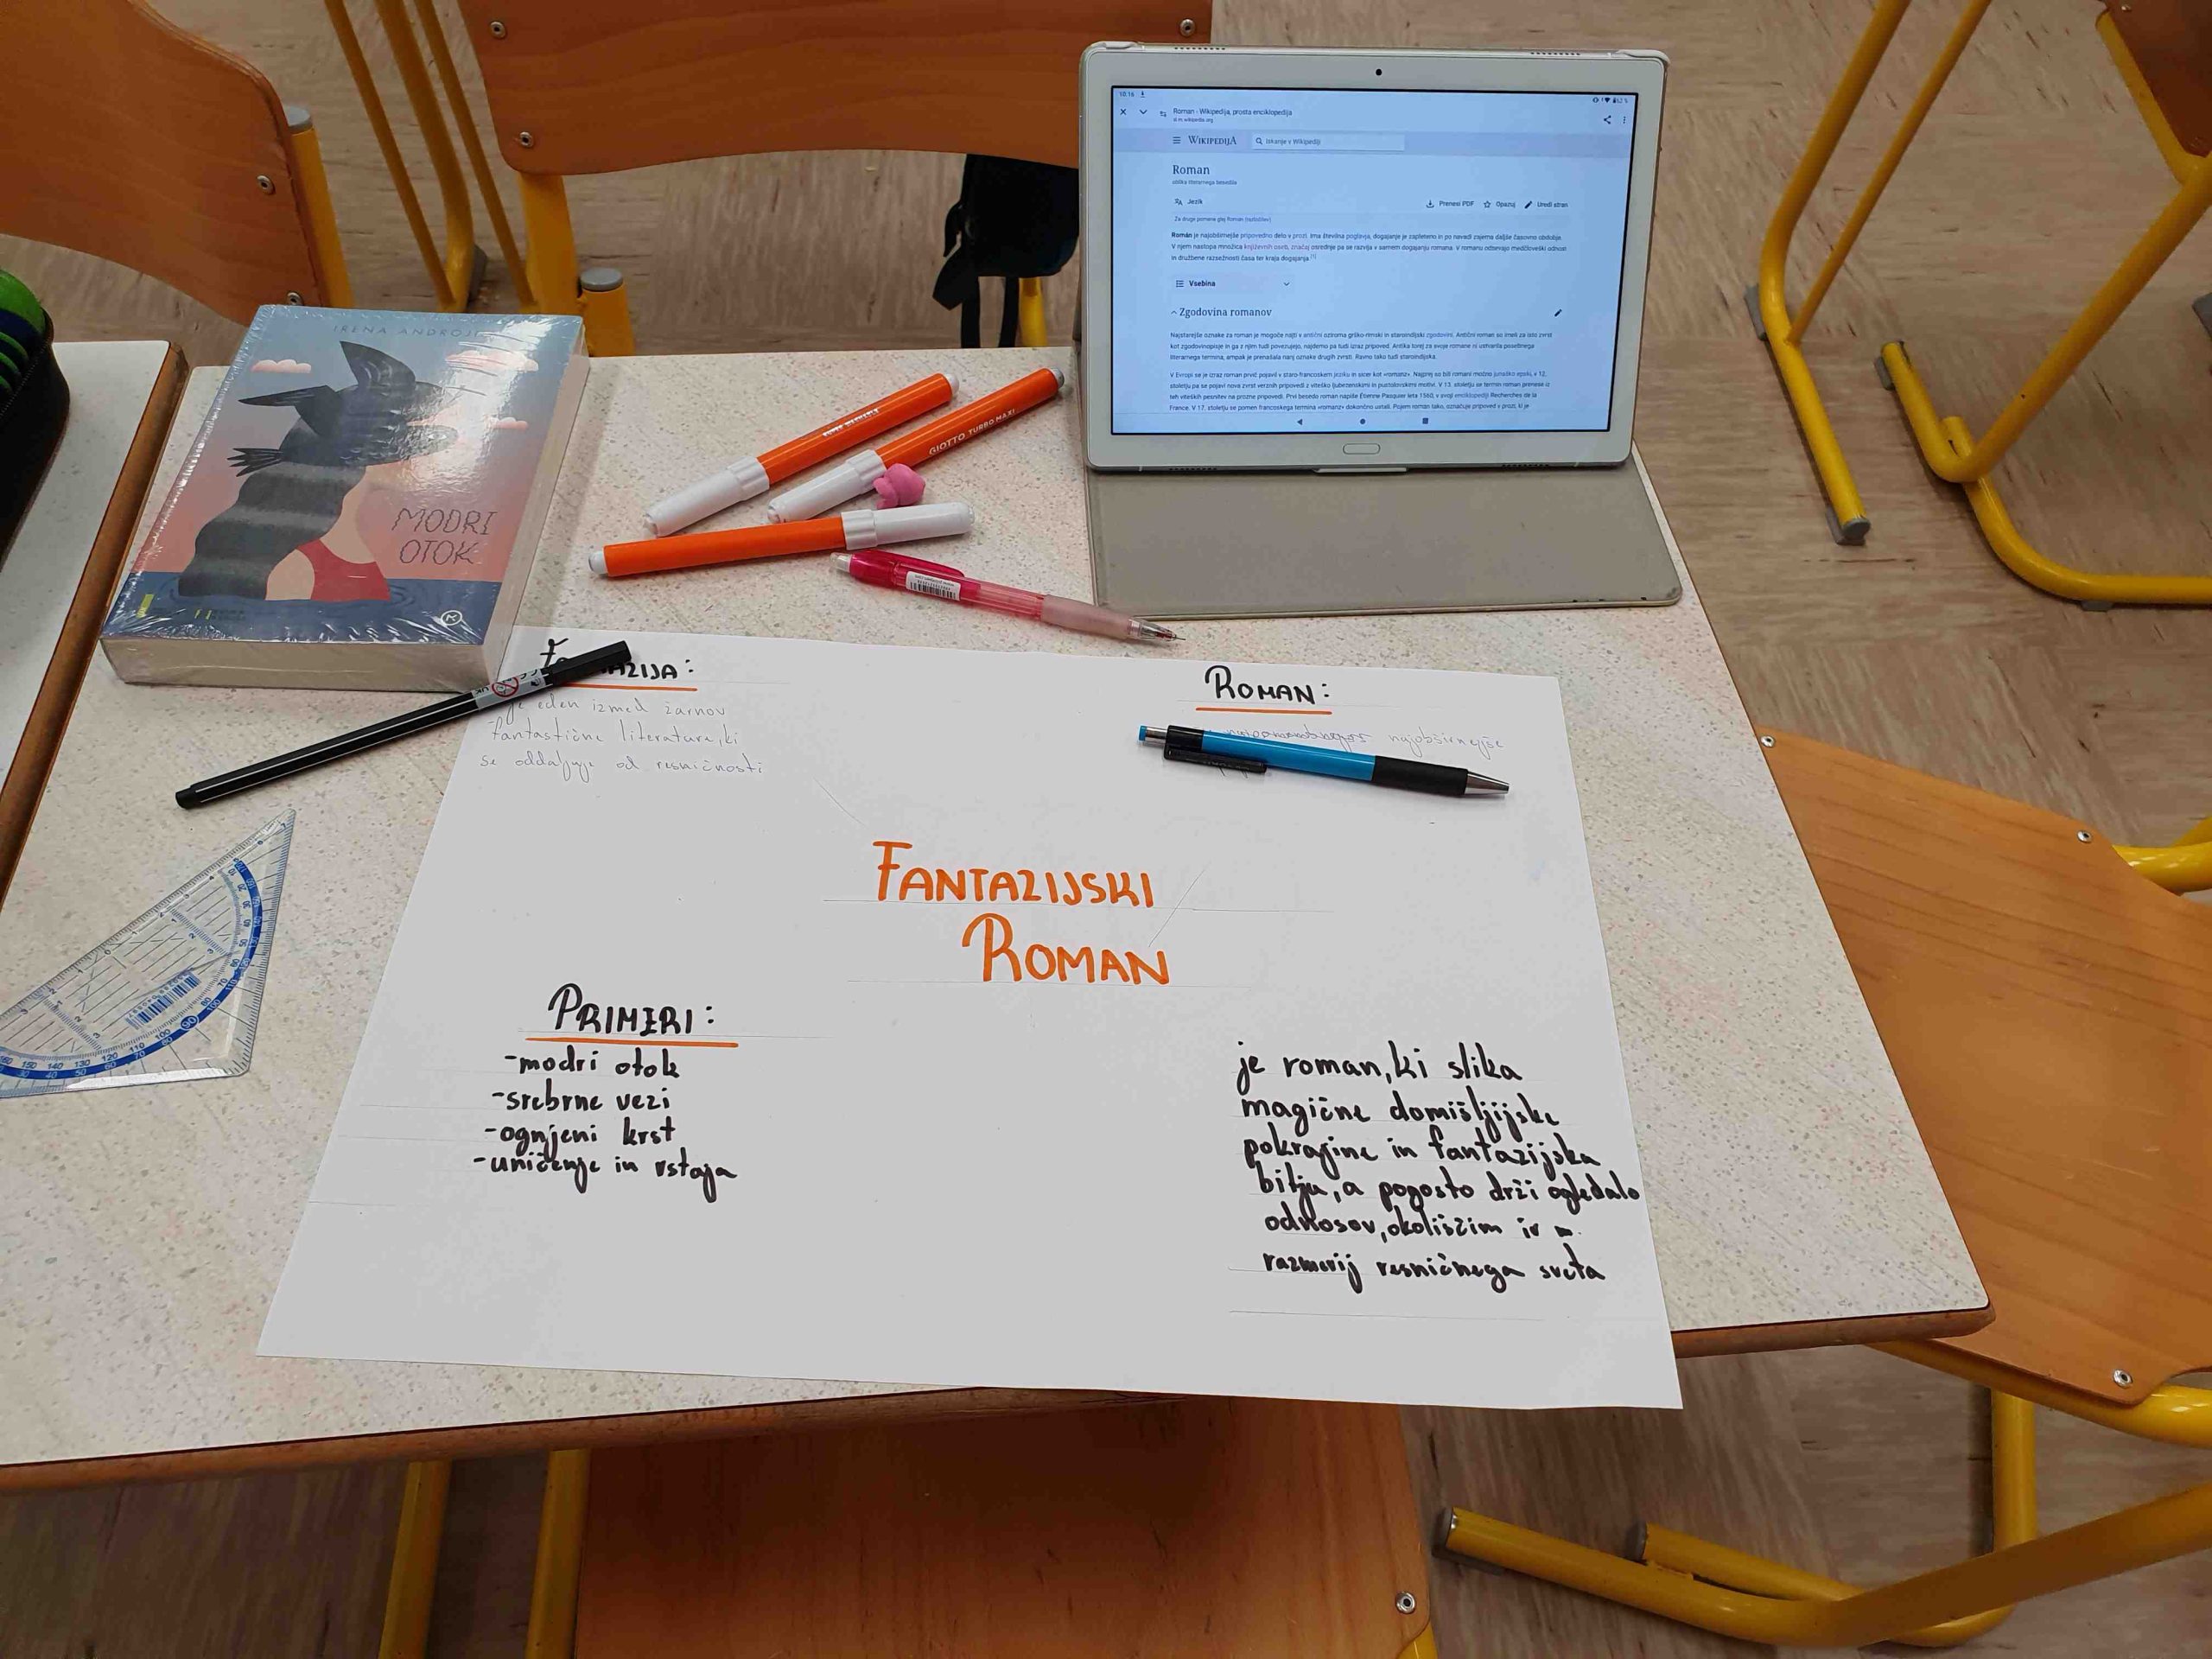 10.16
52 %
Roman - Wikipedija, prosta enciklopedija
sl.m.wikipedia.org
WIKIPEDIJA
Iskanje v Wikipediji
Roman
oblika literarnega besedila
Jezik
Prenesi PDF
Opazuj
Uredi stran
Za druge pomene glej Roman (razločitev).
Román je najobširnejše pripovedno delo v prozi. Ima številna poglavja, dogajanje je zapleteno in po navadi zajema daljše časovno obdobje.
V njem nastopa množica književnih oseb, značaj osrednje pa se razvija v samem dogajanju romana. V romanu odsevajo medčloveški odnosi
in družbene razsežnosti časa ter kraja dogajanja.[1]
Vsebina
Zgodovina romanov
Najstarejše oznake za roman je mogoče najti v antični oziroma grško-rimski in staroindijski zgodovini. Antični roman so imeli za isto zvrst
kot zgodovinopisje in ga z njim tudi povezujejo, najdemo pa tudi izraz pripoved. Antika torej za svoje romane ni ustvarila posebnega
literarnega termina, ampak je prenašala nanj oznake drugih zvrsti. Ravno tako tudi staroindijska.
V Evropi se je izraz roman prvič pojavil v staro-francoskem jeziku in sicer kot «romanz». Najprej so bili romani močno junaško epski, v 12.
stoletju pa se pojavi nova zvrst verznih pripovedi z viteško ljubezenskimi in pustolovskimi motivi. V 13. stoletju se termin roman prenese iz
teh viteških pesnitev na prozne pripovedi. Prvi besedo roman napiše Étienne Pasquier leta 1560, v svoji enciklopediji Recherches de la
France. V 17. stoletju se pomen francoskega termina «romanz» dokončno ustali. Pojem roman tako, označuje pripoved v prozi, ki je
IRENA ANDROJ
MODRI
OTOK
GIOTTO TURBO MAXI
ZIJA:
je eden izmed žanrov
fantastične literature, ki
se oddaljuje od resničnosti
ROMAN:
najobširnejše
FANTAZIJSKI
ROMAN
PRIMERI:
-modri otok
-srebrne vezi
-ognjeni krst
-uničenje in vstaja
je roman, ki slika
magične domišljijske
pokrajine in fantazijska
bitja, a pogosto drži ogledalo
odnosov, okoliščim in
razmerij resničnega sveta